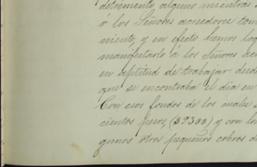 detrimento, alguno mientras
á los Señores acreedores tom
miento, y en efecto hemos log
manifestarlo á los Señores ac
en aptitud de trabajar desde
que se encontraba el dia en
Con esos fondos de los cuales
cientos pesos, ($ y con lo
gunos otros pequeños cobros d